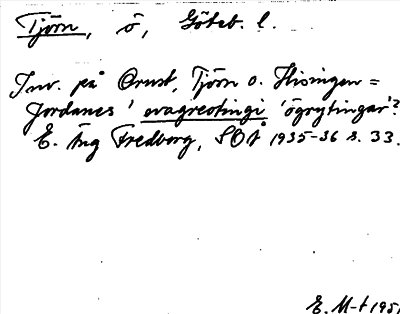 Tjörn, ö, Göteb. l.
Inv. på Orust, Tjörn o. Hisingen =
Jordanes' evagreotingi 'ögrytingar'?
E. Äng Fredborg, SOÅ 1935-36 s. 33.
E. M-t 1951